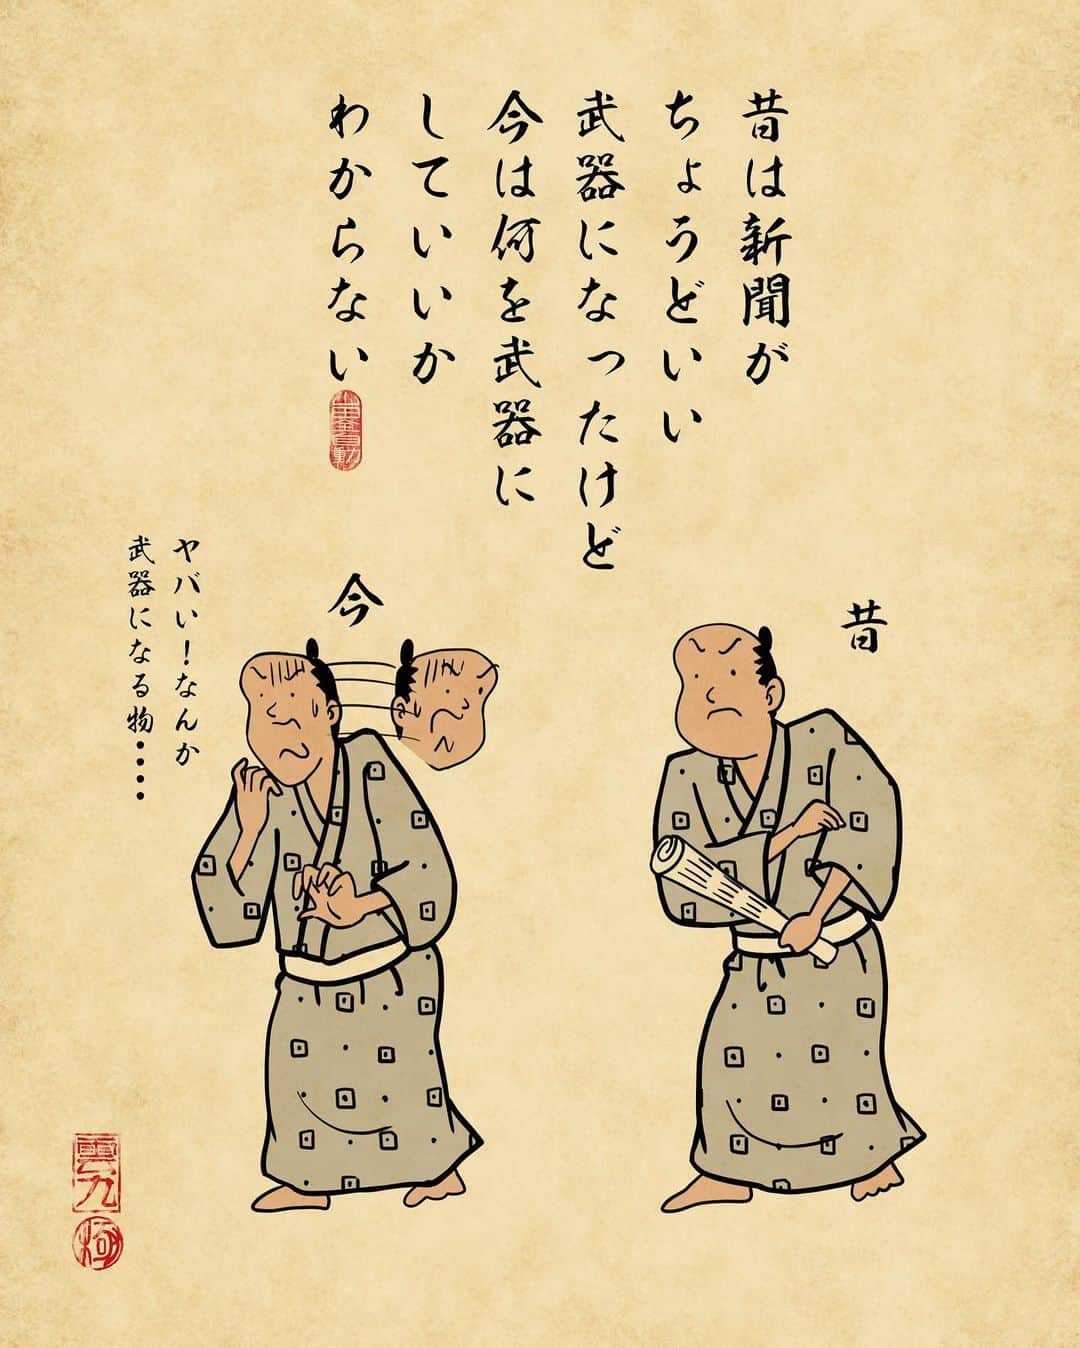 昔は新聞が
ちょうどいい
武器になったけど
今は何を武器に
していいか
わからない
昔
今
ヤバい！なんか
武器になる物・・・・